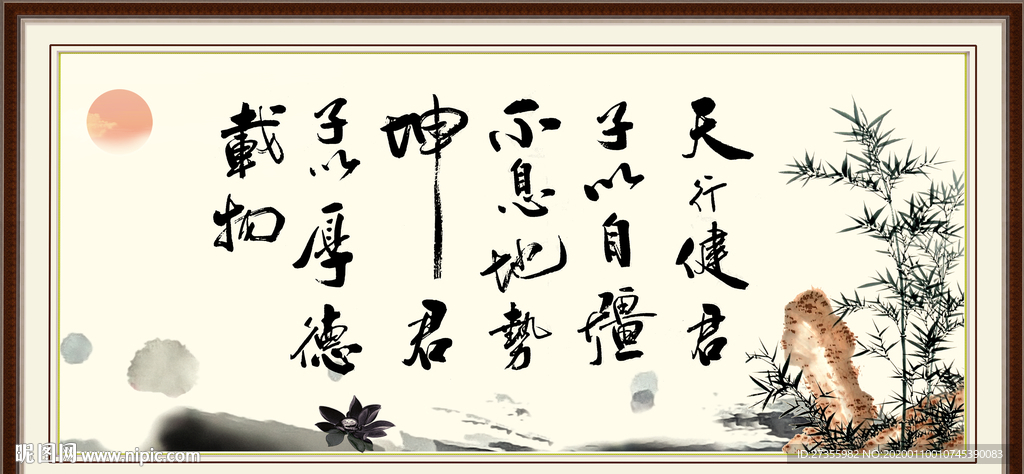 天行健君
子以自疆
不息地勢
坤君
子以厚德
載物
昵图网 www.nipic.com
ID:27355982 NO:20200110010745390083